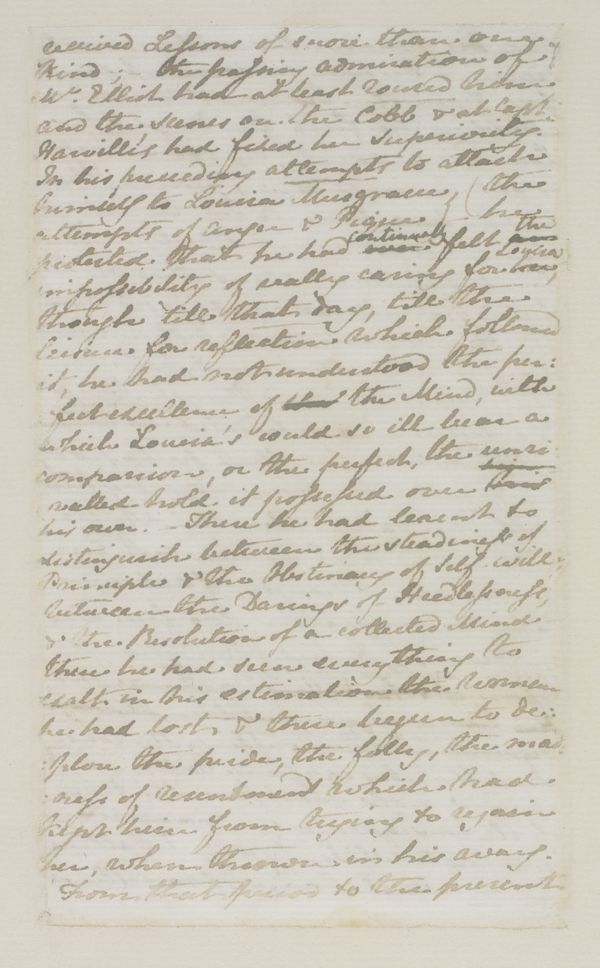 received Lessons of more than one
Kind; the passing admiration of
Mr. Elliot had at least roused him
and the scenes on the Cobb & at Capt:
Harville's had fixed her superiority.
In his preceding attempts to attach
himself to Louisa Musgrove, (the
attempts of anger & Pique) he
protested that he had continually felt the
impossibility of really caring for Louisa,
though till that day, till the
leisure for reflection which followed
it, he had not understood the per:
:fect excellence of the Mind, with
which Louisa's could so ill bear a
comparison, or the perfect, the unri:
:valled hold it possessed over
his own. There he had learnt to
distinguish between the steadiness of
Principle & the Obstinacy of Self-will,
between the Darings of Heedlessness,
& the Resolution of a collected Mind
there he had seen everything to
exalt in his estimation the Woman
he had lost, & there begun to de:
:plore the pride, the folly, the mad:
:ness of resentment which had
kept him from trying to regain
her, when thrown in his way.
From that period to the present